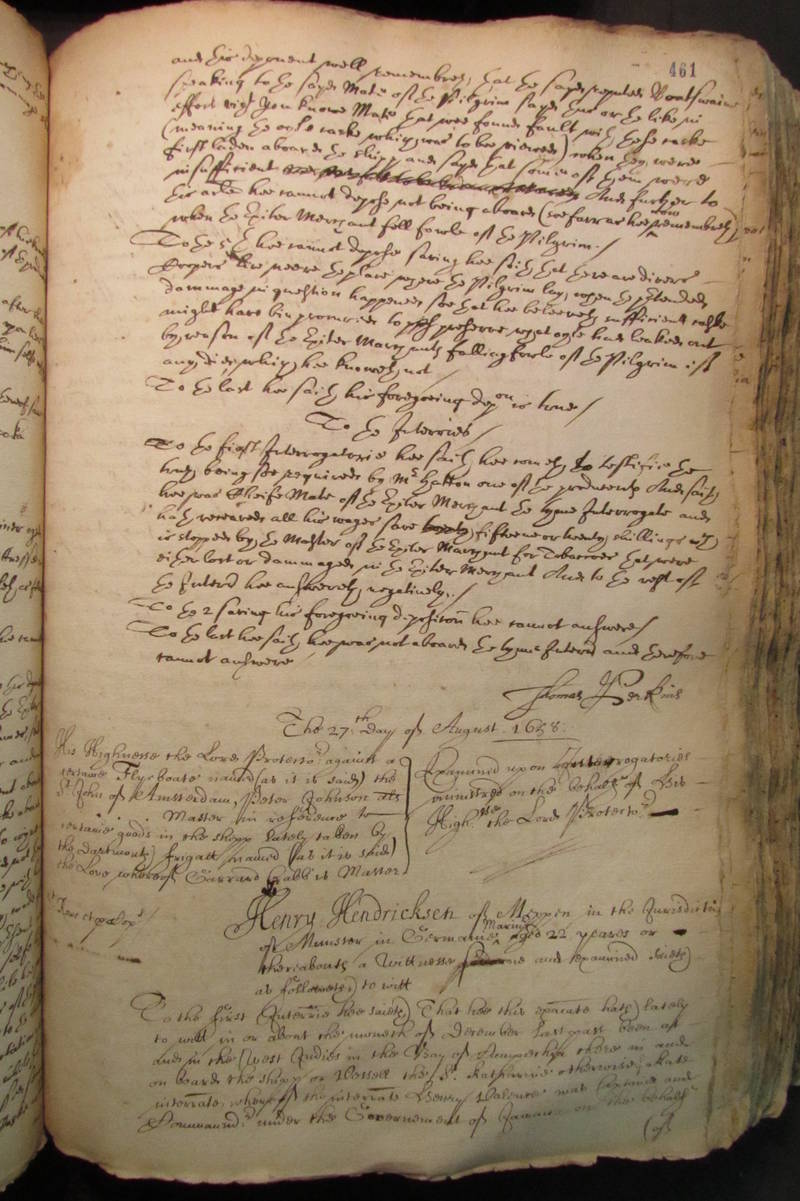 461
and this deponent well remembreth that the sayd reputed Boatswaine
speaking to the sayd Mate of the Pilgrim sayd thus or the like in
effect vizt You knowe Mate that wee found fault with these caske
(meaning the oyle caske which was to bee viewed) when they were
first laden aboard the shipp and sayd that some of them were
insufficient And further to
this article hee cannot depose not being aboard (soe farr as hee now remembreth)
when the Exeter Merchant fell fowle of the Pilgrim./
To the 5th hee cannot depose saving hee saith that there are divers
Coopers live neere the place where the Pilgrim lay, when the pretended
dammage in question happened soe that hee beleeveth sufficient caske
might have bin procured to preserve what oyle had leaked out
by reason of the Exeter Merchants falling fowle of the Pilgrim if
any did, which hee knoweth not./
To the last hee saith his foregoeing depon is true/
To the Interries/
To the first Interrogatorie hee saith hee cometh to testifie the
truth being soe required by Mr Hatton one of the producents And saith
hee was Cheife Mate of the Exeter Merchant the tyme Interrogate and
hath received all his wages save fifteene or twenty shillings which
is stopped by the Master of the Exeter Marchant for Tobaccoes that were
either lost or dammaged in the Exeter Merchant And to the rest of
the Interrie hee answereth negatively./
To the 2 saving his foregoeing deposition hee cannot answere/
To the last hee saith hee was not aboard the tyme Interrie and therefore
cannot answere/
Thomas Perkins
The 27th Day of August 1658:
His Highnesse the Lord Protector against a
certaine Flyeboate named (as it is said) the
St John of Amsterdam, Peter Johnson
Master in reference to
certaine goods in the shipp lately taken by
the Dartmouth frigatt named (as it is said)
the Love whereof Garrard is Master
Examined upon Interrogatories
ministred on the behalfe of His
Highnsse the Lord Protector
Henry Hendricksen of Meppen in the Jurisdiction
of Munster in Germanie Mariner aged 22 yeares or
thereabouts a Wittnesse sworne and examined saieth
as followeth) to witt
To the first Interrie hee saieth That hee this examinate hath lately
to witt in or about the moneth of December last past been at
and in the West Indies in the Bay of there in and
on board the shipp or Vessell the St Katharine otherwise Kate
interrate, whereof the interrate Henry was Captaine and
Commaundr under the Governement of Jamaica on the behalfe
(of